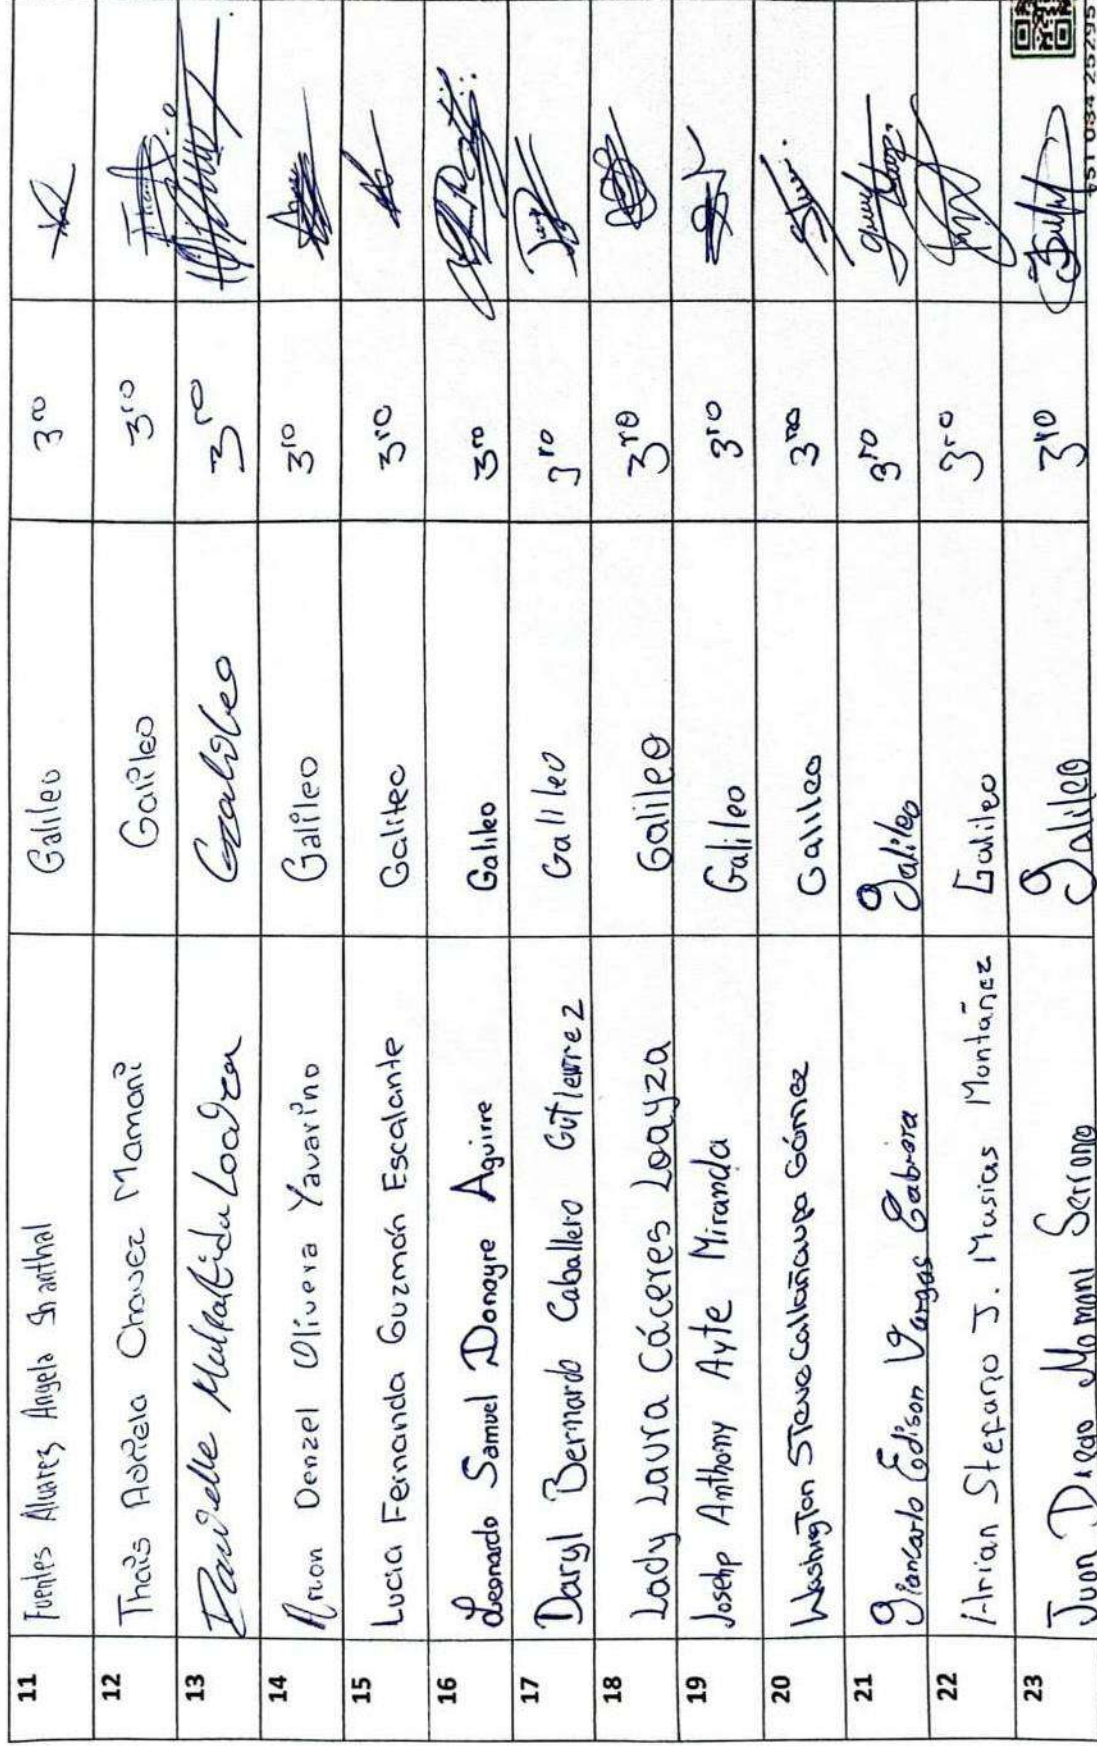 11 Fuentes Alvarez Angela Shanthal Galileo 3ro
12 Thais Adriela Chavez Mamani Galileo 3ro
13 Galileo 3ro
14 Denzel Olivera Yavarino Galileo 3ro
15 Lucia Fernanda Guzmán Escalante Galileo 3ro
16 Leonardo Samuel Donayre Aguirre Galileo 3ro
17 Daryl Bernardo Caballero Gutierrez Galileo 3ro
18 Lady Laura Cáceres Loayza Galileo 3ro
19 Josehp Anthony Ayte Miranda Galileo 3ro
20 Washington Steve Callañaupa Gómez Galileo 3ro
21 Giancarlo Edison Vargas Cabrera Galileo 3ro
22 Adrian Stefano J. Musias Montáñez Galileo 3ro
23 Juan Diego Mamani Serrano Galileo 3ro